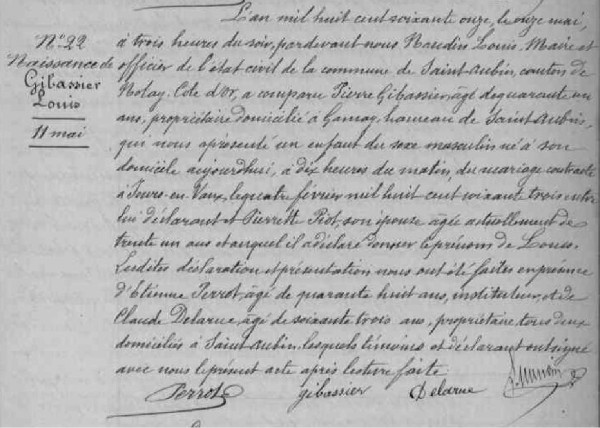 L'an mil huit cent soixante onze, le onze mai,
à trois heures du soir, pardevant nous Naudin Louis, Maire et
officier de l'état civil de la commune de Saint Aubin, canton de
Nolay, Côte d'Or, a comparu Pierre Gibassier, âgé de quarante un
ans, propriétaire domicilié à Gamay, hameau de Saint Aubin,
qui nous a présenté un enfant du sexe masculin né à son
domicile aujourdhui, à dix heures du matin, du mariage contracté
à Jours-en-Vaux, le quatre février mil huit cent soixante trois entre
lui déclarant et Pierrette Piot, son épouse âgée actuellement de
trente un ans et auquel il a déclaré donner le prénom de Louis.
Lesdites déclaration et présentation nous ont été faites en présence
d'Etienne Perrot, âgé de quarante huit ans, instituteur, et de
Claude Delarue, âgé de soixante trois ans, propriétaire, tous deux
domiciliés à Saint Aubin, lesquels témoins et déclarant ont signé
avec nous le présent acte après lecture faite.
Perrot gibassier Delarue
N° 22
Naissance de
Gibassier
Louis
11 mai